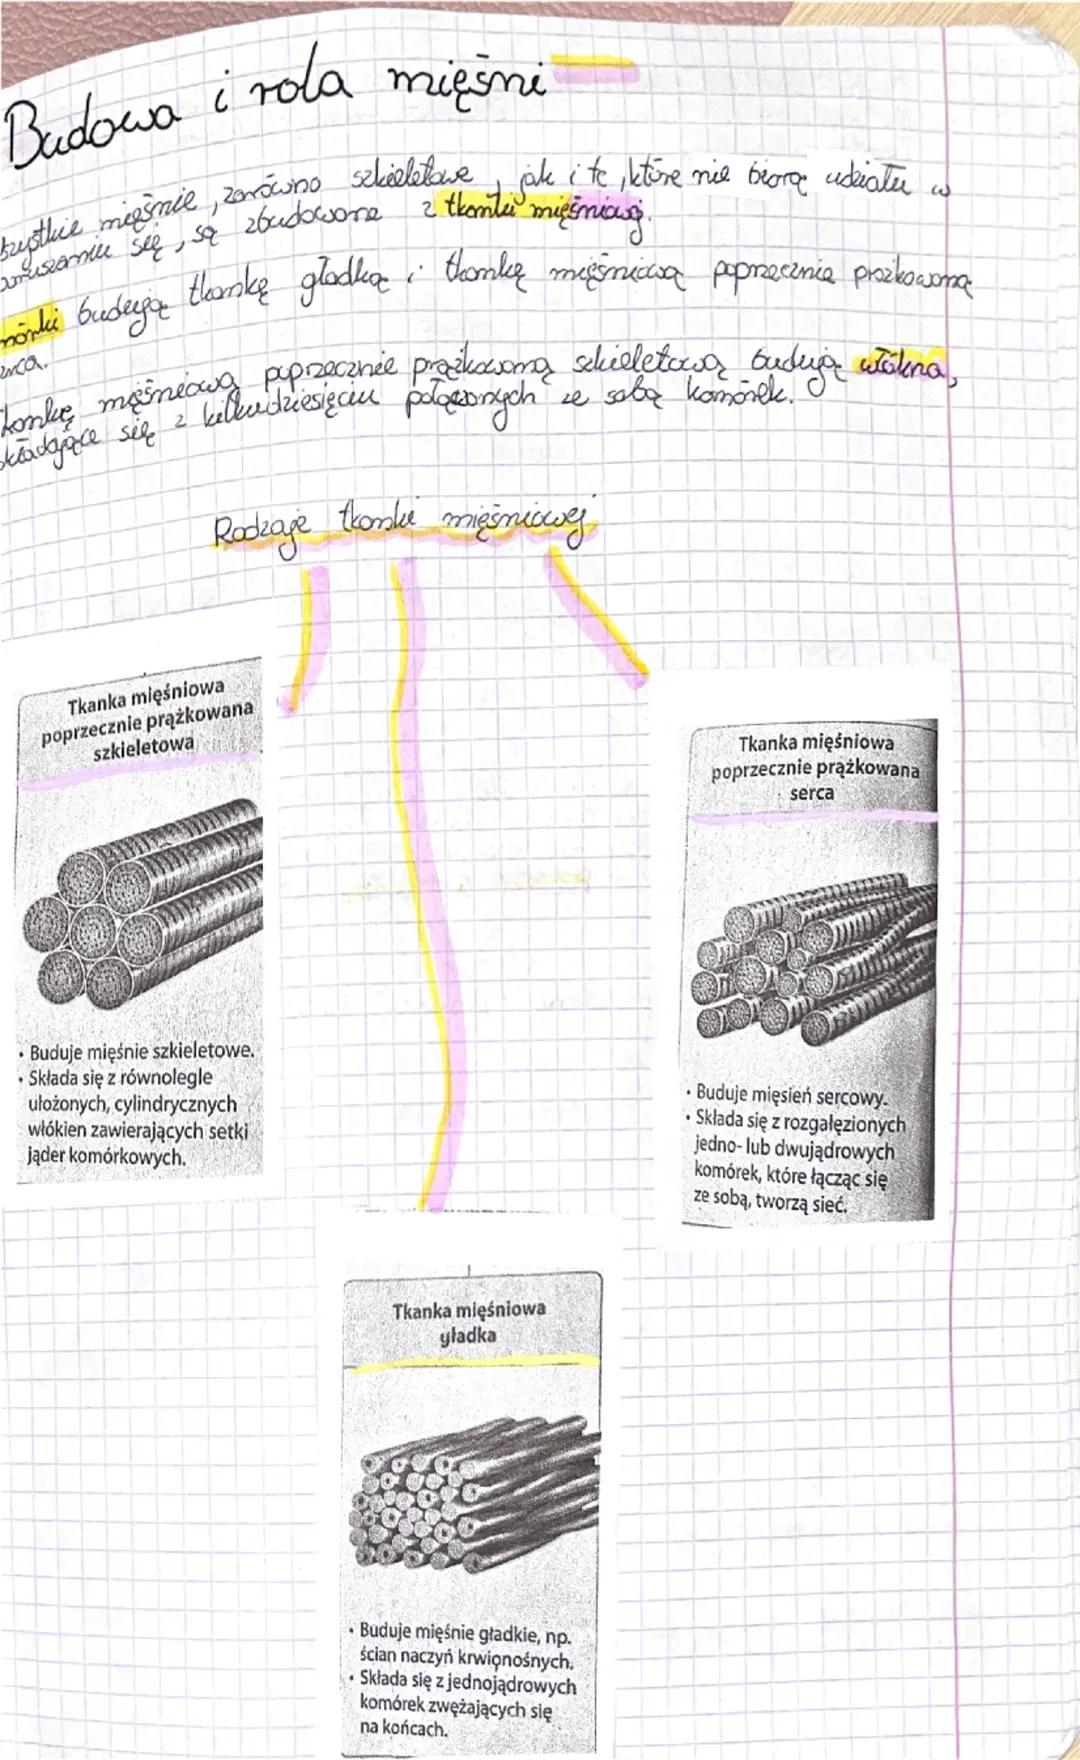 Budowa i rola mięśni
szystkie mięśnie, zarówno szkieletowe, jak i te, które nie biorą udziału w
poruszaniu się, są zbudowane z tkanki mięśniowej.
mórki budują tkankę gładką i tkankę mięśniową poprzecznie prążkowaną
erca.
kankę mięśniową poprzecznie prążkowaną szkieletową budują włókna,
składające się z kilkudziesięciu połączonych ze sobą komórek.
Rodzaje tkanki mięśniowej
Tkanka mięśniowa
poprzecznie prążkowana
szkieletowa
• Buduje mięśnie szkieletowe.
• Składa się z równolegle
ułożonych, cylindrycznych
włókien zawierających setki
jąder komórkowych.
Tkanka mięśniowa
poprzecznie prążkowana
serca
• Buduje mięsień sercowy.
• Składa się z rozgałęzionych
jedno- lub dwujądrowych
komórek, które łącząc się
ze sobą, tworzą sieć.
Tkanka mięśniowa
gładka
• Buduje mięśnie gładkie, np.
ścian naczyń krwionośnych.
• Składa się z jednojądrowych
komórek zwężających się
na końcach.